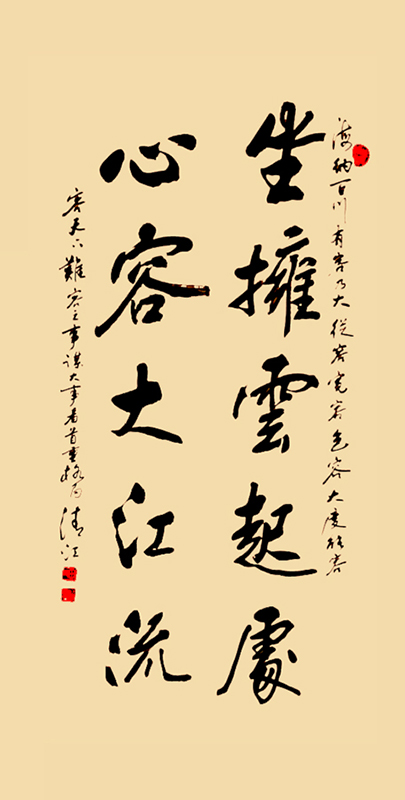 海納百川有容乃大從容寬容包容大度能容
坐擁雲起處
心容大江流
容天下難容之事謀大事者首重格局清江